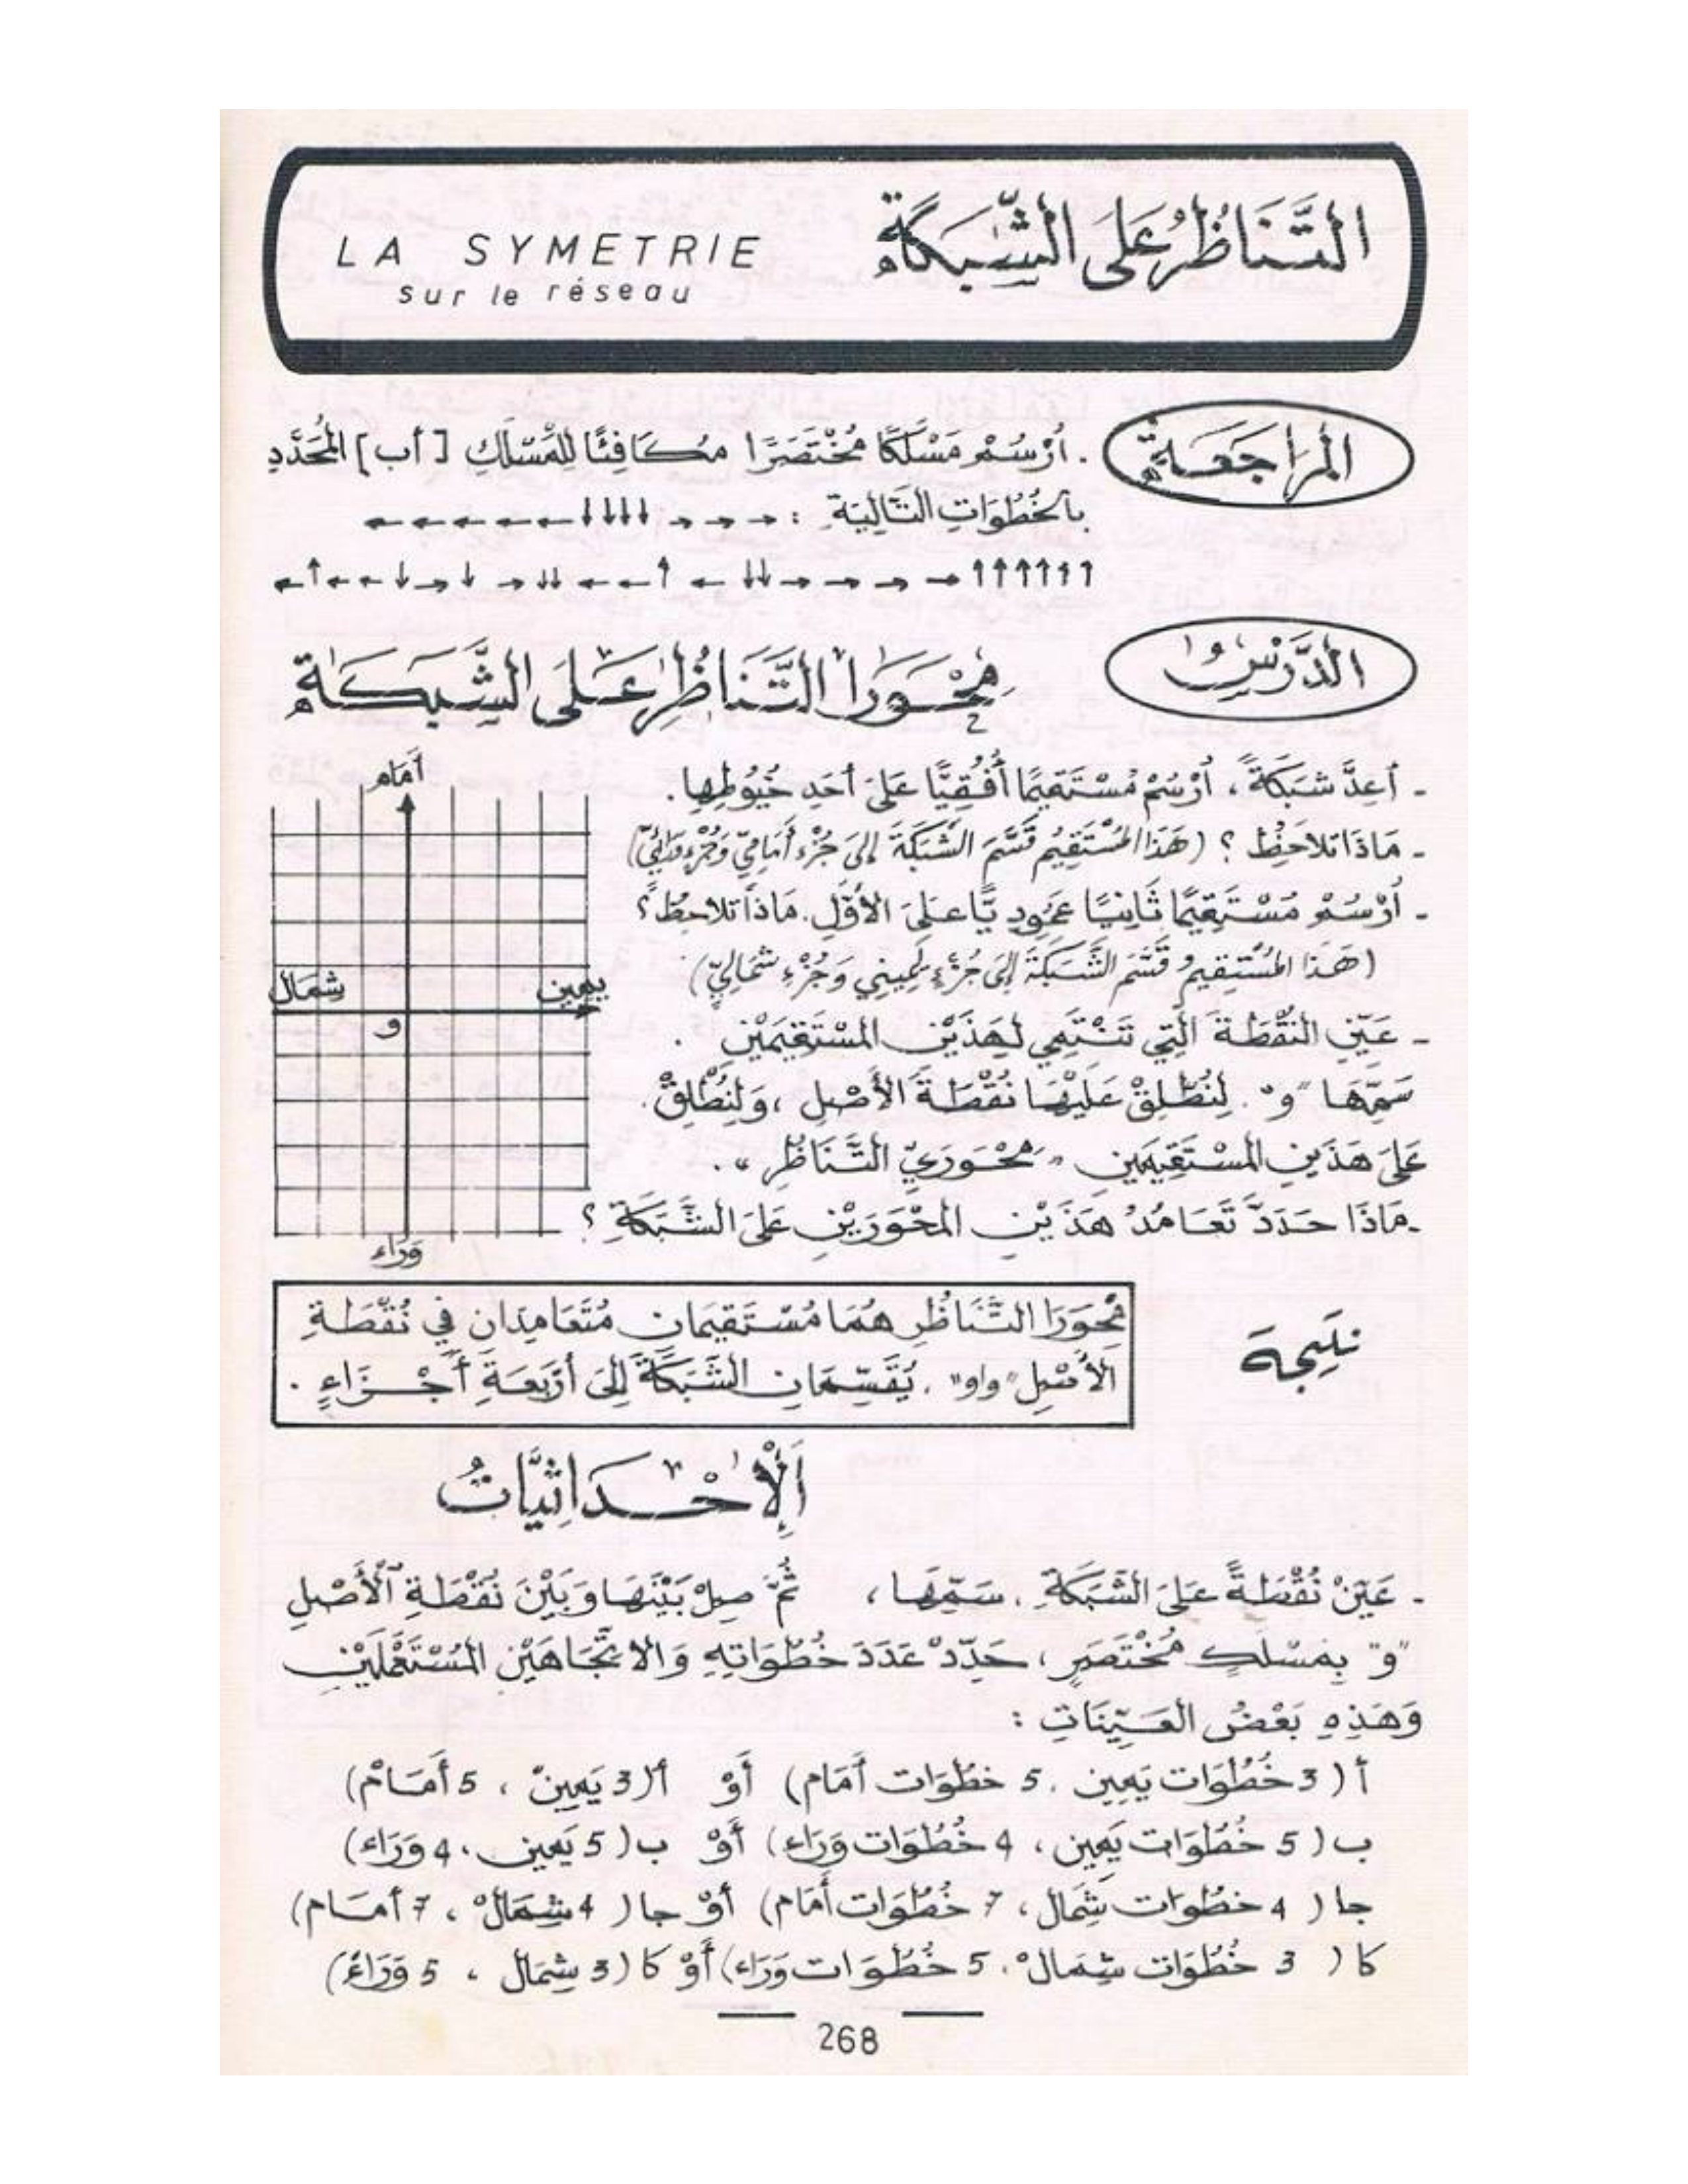 التَّنَاظُرُ عَلَى الشَّبَكَةِ
LA SYMETRIE
sur le réseau
المُرَاجَعَةُ
. اُرْسُمْ مَسْلَكًا مُخْتَصَرًا مُكَافِئًا لِلْمَسْلَكِ [أب] المُحَدَّدِ
بِالخُطُوَاتِ التَّالِيَةِ : → → → ↓↓↓↓ ← ← ← ← ←
الدَّرْسُ
مِحْوَرَا التَّنَاظُرِ عَلَى الشَّبَكَةِ
- أَعِدَّ شَبَكَةً ، اُرْسُمْ مُسْتَقِيمًا أُفُقِيًّا عَلَى أَحَدِ خُيُوطِهَا .
- مَاذَا تلاحَظُ ؟ (هَذَا المُسْتَقِيمُ قَسَّمَ الشَّبَكَةَ إلىَ جُزْءٍ أَمَامِيٍّ وَجُزْءٍ وَرَائِيٍّ)
- اُرْسُمْ مُسْتَقِيمًا ثَانِيًا عَمُودِيًّا عَلَى الأَوَّلِ . مَاذَا تلاحِظُ ؟
(هَذَا المُسْتَقِيمُ قَسَّمَ الشَّبَكَةَ إلَى جُزْءٍ يَمِينِي وَجُزْءٍ شَمَالِيٍّ)
- عَيِّنِ النُّقْطَةَ الَّتِي تَنْتَمِي لِهَذَيْنِ المُسْتَقِيمَيْنِ .
سَمِّهَا "و" . لِنُطْلِقْ عَلَيْهَا نُقْطَةَ الأَصْلِ ، وَلْنُطْلِقْ .
عَلَى هَذَيْنِ المُسْتَقِيمَيْنِ "مِحْوَرَيِّ التَّنَاظُرِ" .
- مَاذَا حَدَدَّ تَعَامُدُ هَذَيْنِ المِحْوَرَيْنِ عَلَى الشَّبَكَةِ ؟
أَمَام
شِمَال
يمين
و
وَرَاء
نتيجة
مِحْوَرَا التَّنَاظُرِ هُمَا مُسْتَقِيمَانِ مُتَعَامِدَانِ فِي نُقْطَةِ
الأَصْلِ "واو" . يُقَسِّمَانِ الشَّبَكَةَ إِلَى أَرْبَعَةِ أَجْزَاءٍ .
اَلْإِحْدَاثِيَّاتُ
- عَيِّنْ نُقْطَةً عَلَى الشَّبَكَةِ . سَمِّهَا ، ثُمَّ صِلْ بَيْنَهَا وَبَيْنَ نُقْطَةِ الْأَصْلِ
"و" بِمَسْلَكٍ مُخْتَصَرٍ ، حَدِّدْ عَدَدَ خُطُوَاتِهِ وَالاتِّجَاهَيْنِ المُسْتَعْمَلَيْنِ
وَهَذِهِ بَعْضُ العَيِّنَاتِ :
أ ( 3 خُطُوَات يَمِين . 5 خطُوَات أَمَام) أَوْ أ( 3 يَمِينْ ، 5 أَمَامْ)
ب ( 5 خُطُوَات يَمِين ، 4 خُطُوَات وَرَاء) أَوْ ب( 5 يَمِين . 4 وَرَاء)
جا ( 4 خطُوَات شِمَال ، 7 خُطُوَات أَمَام) أوْ جا( 4 شِمَالْ ، 7 أمَام)
كا ( 3 خُطُوَات شِمَالْ . 5 خُطُوَات وَرَاء) أَوْ كا ( 3 شِمَال ، 5 وَرَاءْ)
268